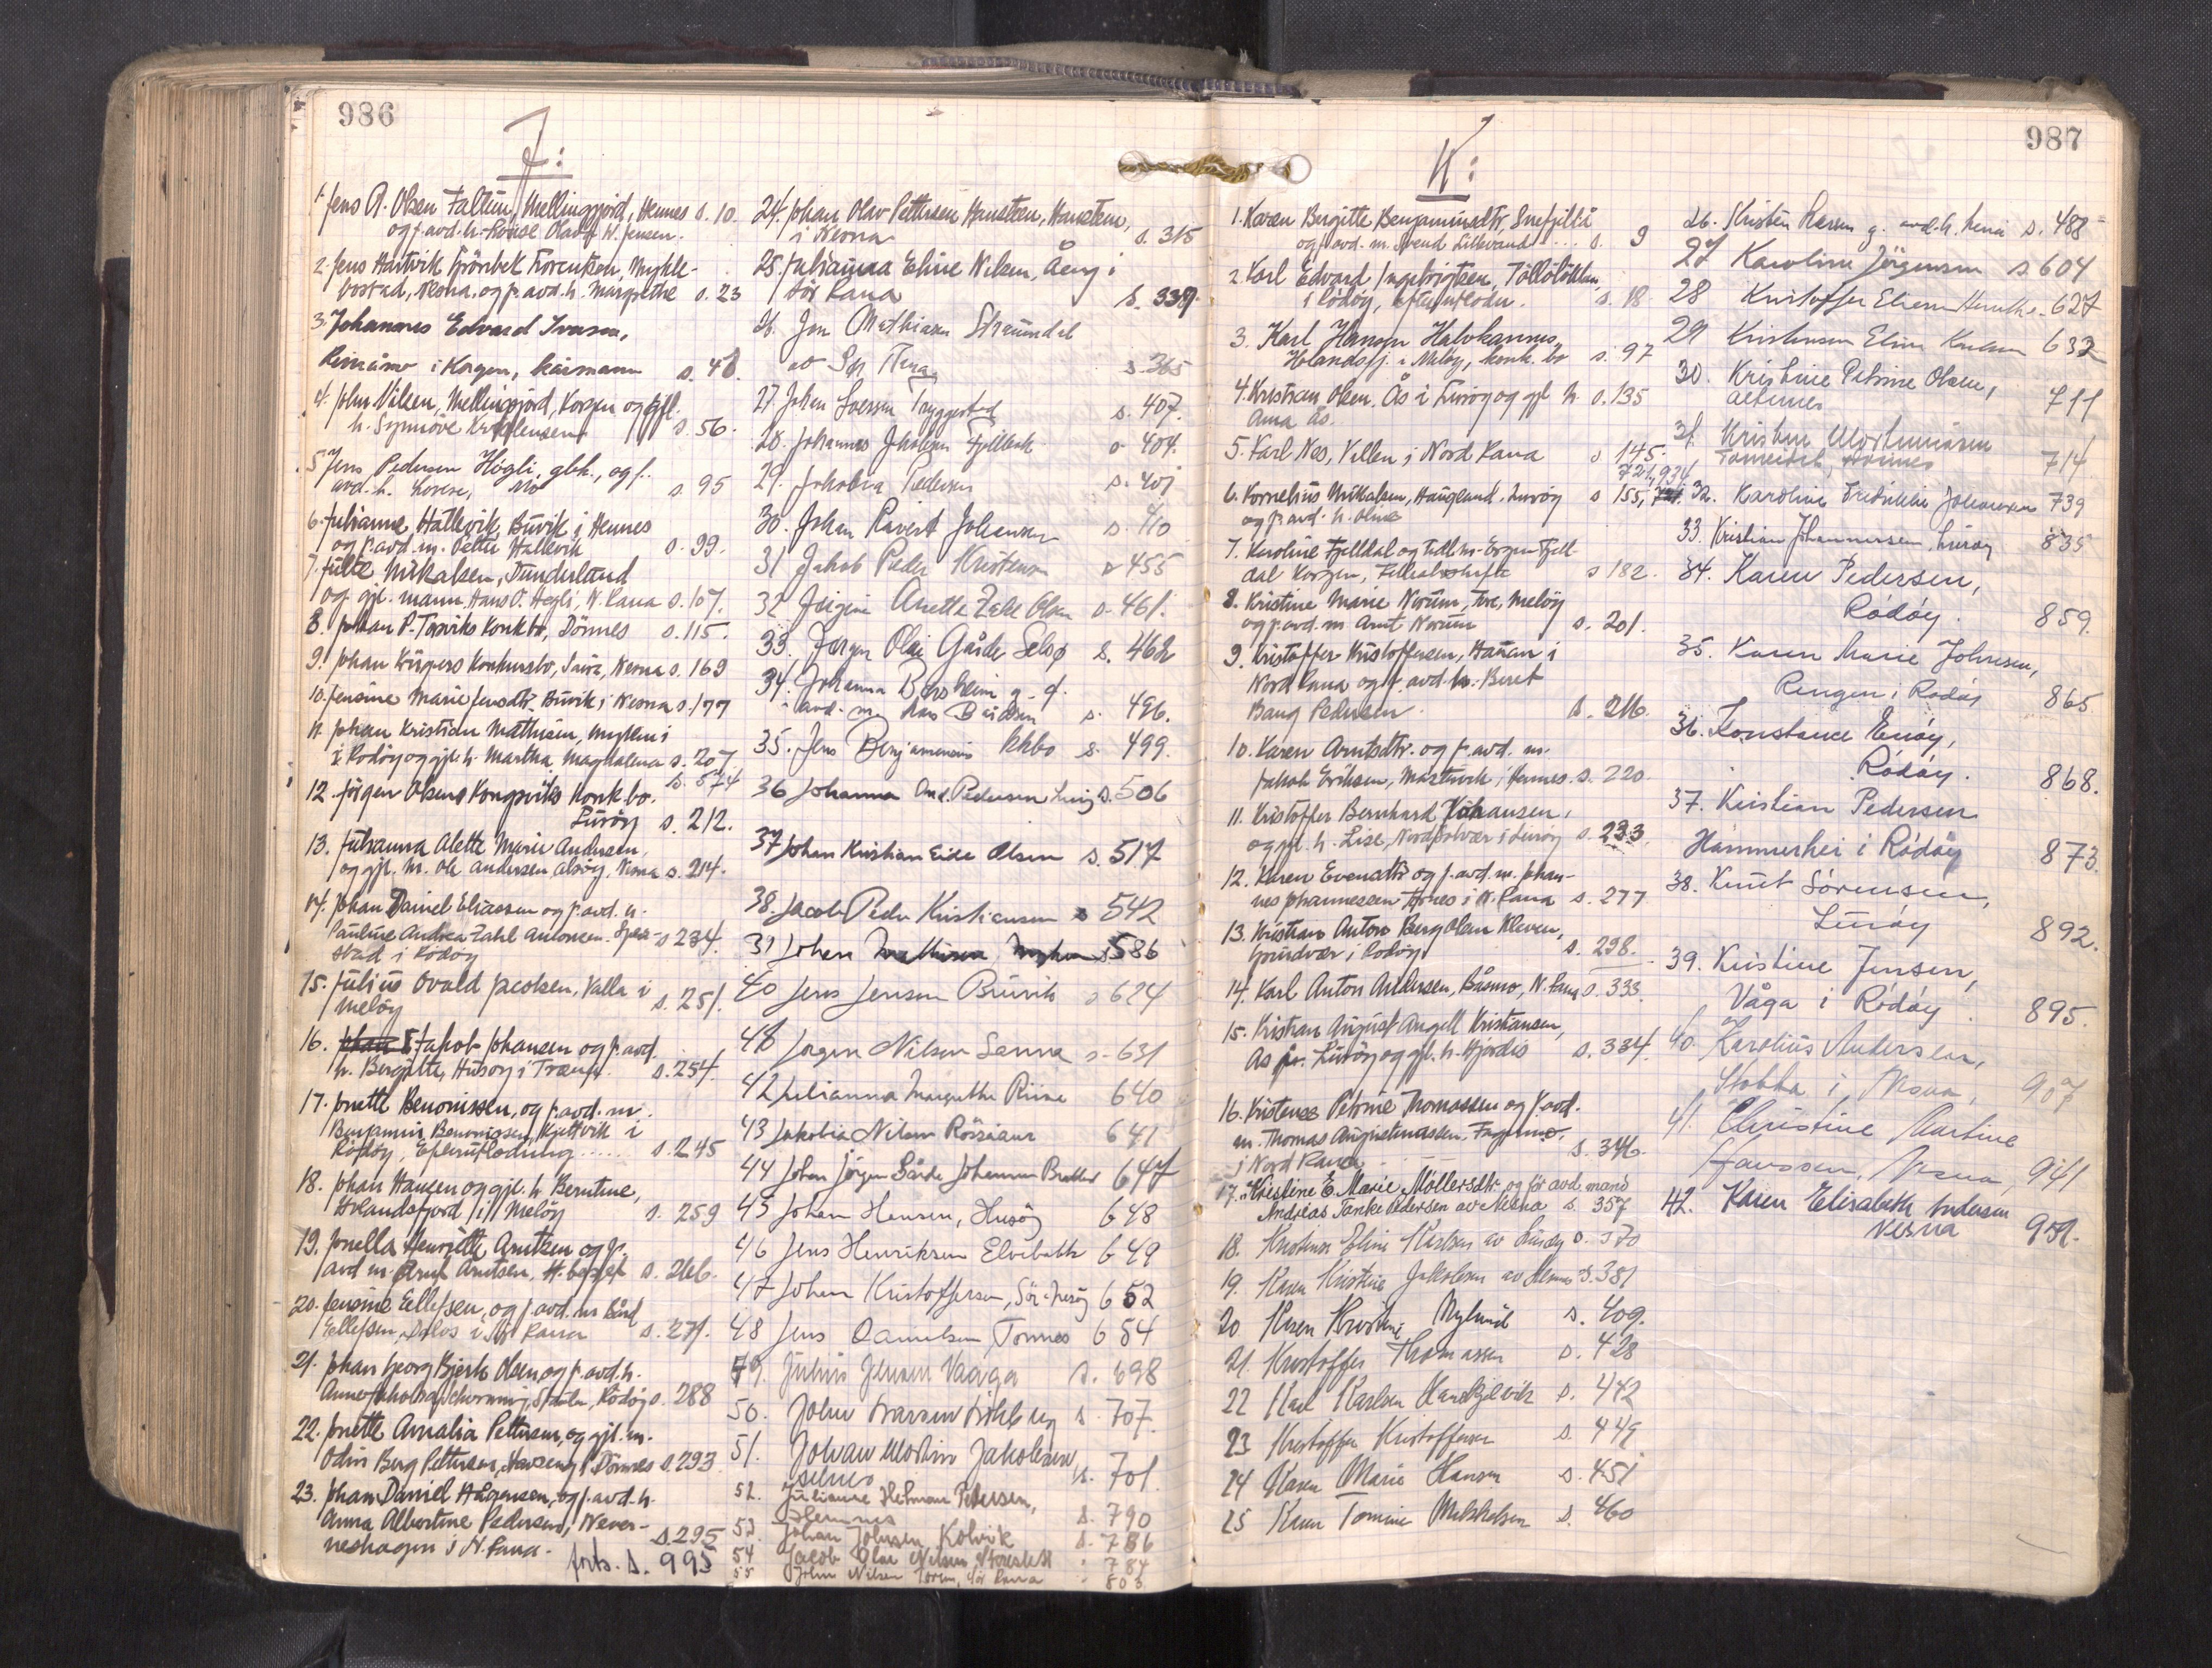 986
J:
1. Jens A. Olsen Faltin, Mellingfjord, Hemnes s. 10
og f. avd. h. Olava W. Jensen.
2. Jens Hartvik Grönbek Lorentzen, Mykle-
bostad, Nesna, og f. avd. h. Margrethe s. 23
3. Johannes Edvard Ivarsen,
i Korgen, kårmann s. 48
4. John Nilsen, Mellingfjord, Korgen og gjl.
h. Synnöve s. 56.
5. Jens Pedersen Högli, gbk., og f.
avd. h. Lovise, Mo s. 95
6. Julianne Hallevik, Buvik i Hemnes
og f. avd. m. Petter Hallevik s. 99.
7. Julie Mikalsen, Dunderland
og gjl. mann Hans O. Hegli, N. Rana s. 107.
8. Johan P. Torviks konkbo, Dönnes s. 115.
9. Johan konkursbo, Nesna s. 169
10. Jensine Marie Jensdtr. Buvik i Nesna s. 177
11. Johan Kristian Mathisen, Myken i
i Rödöy og gjl. h. Martha Magdalena s. 207.
s. 574
12. Jörgen Olsens Kongsviks konkbo.
Luröy s. 212.
13. Julianna Alette Marie Andersen,
og gjl. m. Ole Andersen Alsöy, Nesna s. 214.
14. Johan Daniel Eliassen og f. avd. h.
Pauline Andrea Zahl Antonsen. s. 234.
i Rödöy
15. Julius Ovald Jacobsen, Valla i
Meløy s. 251.
16. Jakob Johansen og f. avd.
h. Bergitte, Husöy i Træna. s. 254.
17. Jonette Benonissen, og f. avd. m.
Benjamin Benonissen, Kjettvik i
Rödöy, Efterutlodning ..... s. 245
18. Johan Hansen og gjl. h. Berntine,
Holandsfjord i Melöy s. 259
19. Jonella Henrijette Arntzen og f.
avd. m. Arnt Arntsen, s. 266.
20. Jensine Ellefsen, og f. avd. m. Bård
Ellefsen, i N. Rana s. 271.
21. Johan Georg Bjerk Olsen og f. avd. h.
Anne Jakobea Rödöy s. 288
22. Jonette Amalia Pettersen, og gjl. m.
Odin Berg Pettersen, i Dönnes s. 293
23. Johan Daniel Hågensen, og f. avd. h.
Anna Albertine Pedersen, Never-
neshagen i N. Rana. s. 295
forts. s. 995
24. Johan Olav Pettersen Hansteen, Hansteen,
i Nesna s. 315
25. Julianna Eline Nilsen, Åeng i
Sör Rana s. 339.
26. Jon Mathiasen Straumdal
av Sör Rana s. 365
27. Johan Svensen Tryggestad s. 407.
28. Johannes Jakobsen Fjellbak s. 404.
29. Jakobia Pedersen s. 407
30. Johan Johansen s. 410
31 Jakob Peder Kristensen s 455
32 Jörgine Anette Zahl Olsen s. 461.
33. Jørgen Olai Gårder Selsø s. 462
34. Johanna Bonsheim g. f.
avd. m. s. 496.
35. Jens Benjaminsens kkbo s. 499.
36 Johanna And. Pedersen s. 506
37 Johan Kristian Eide Olsen s. 517
38. Jacob Peder Kristiansen s 542
39 Johan s 586
40 Jens Jensen Buvik s 624
48 Jørgen Nilsen Sanna s. 631
42 Julianna Margrethe Riise 640
43 Jakobia Nilsen Rössåaur 641
44 Johan Jörgen Gårde Johansen 647
45 Johan Hansen, Husöy 648
46 Jens Henriksen Elvebakk 649
47 Johan Kristoffersen, Sör-Nesöy 652
48 Jens Danielsen Tonnes 654
49. Julius Jensen Vaaga s. 698
50. Johan s. 707.
51. Johan Martin Jakobsen,
Selnes s. 701.
52. Julianne Herman Petersen,
Slemnes s. 790
53. Johan Johnsen Kolvik s. 786
54 Jacob Olai Nilsen, " 784
55 John Nilsen Sör Rana " 803
987
K:
1. Karen Birgitte Benjaminsdtr, Snefjellå
og f. avd. m. Svend Lillevand ... s. 9
2. Karl Edvard Ingebrigtsen,
i Rödöy, efterutlodn. s. 18.
3. Karl Hansen Halvhannes,
Holandsfj. i Melöy, konk. bo s. 97
4. Kristian Olsen. Ås i Luröy og gjl h. s. 135
Anna Ås.
5. Karl Nes, Villen i Nord Rana s 145.
721, 934
6. Kornelius Mikalsen, Haugland, Luröy s 155,
og f. avd. h. Oline
7. Karoline Fjelldal og Fjell-
dal Korgen, s 182.
8. Kristine Marie Norum, Fore, Melöy
og f. avd. m Arnt Norum s. 201.
9. Kristoffer Kristoffersen, Hauan i
Nord Rana og f. avd. h. Beret
Bang Pedersen. s. 216.
10. Karen Arntsdtr. og f. avd. m.
Jakob Eriksen, i Hemnes. s. 220.
11. Kristoffer Bernhard Johansen,
og gjl. h. Lise, Nordsolvær i Luröy s. 233.
12. Karen Evensdtr og f. avd. m. Johan-
nes Johannessen i N. Rana s. 277
13. Kristian Anton Berg Olsen Kleven,
i Rödöy s. 298.
14. Karl Anton Andersen, Båsmo, N. Rana s. 333
15. Kristian August Angell Kristiansen,
Ås Luröy og gjl. h. Hjördis s. 334.
16. Kristense Petrine Thomassen og f. avd.
m. Thomas Augustinussen,
i Nord Rana s. 346.
17. Kristine E. Marie Möllersdtr og før avd. mand
Andreas Tanke Pedersen av Nesna s. 357
18. Kristine Eline Karlsen av Luröy s. 370
19. Karen Kristine Jakobsen av Hemnes s. 381
20 Karen Kristine Nylund s. 409.
21. Kristoffer Thomassen s. 428
22 Karl Karlsen s. 442
23 Kristoffer Kristoffersen s. 449
24 Karen Marie Hansen s. 451
25 Karen Tomine Mikkelsen s. 460
26. Kristen Larsen g. avd. h. s. 488
27 Karoline Jörgensen s 604
28 Kristoffer 627
29 Kristensen Eline Karlsen 632
30. Kristine Petrine Olsen,
Alternes 711
31. Kristine Mortensen
714
32. Karoline Fredrikke Johansen 739
33. Kristian Johannessen, Luröy 835
34. Karen Pedersen,
Rödöy. 859.
35. Karen Marie Johnsen,
Ringen i Rödöy 865
36. Konstance Enøy,
Rödöy. 868.
37. Kristian Pedersen
Hammerhei i Rödöy 873.
38. Knut Sörensen,
Luröy 892.
39. Kristine Jensen,
Våga i Rödöy 895.
40. Karolius Andersen,
Stokka i Nesna, 907
41. Christine Martine
Hanssen, Nesna, 941
42. Karen Elisabeth Andersen
Nesna 959.